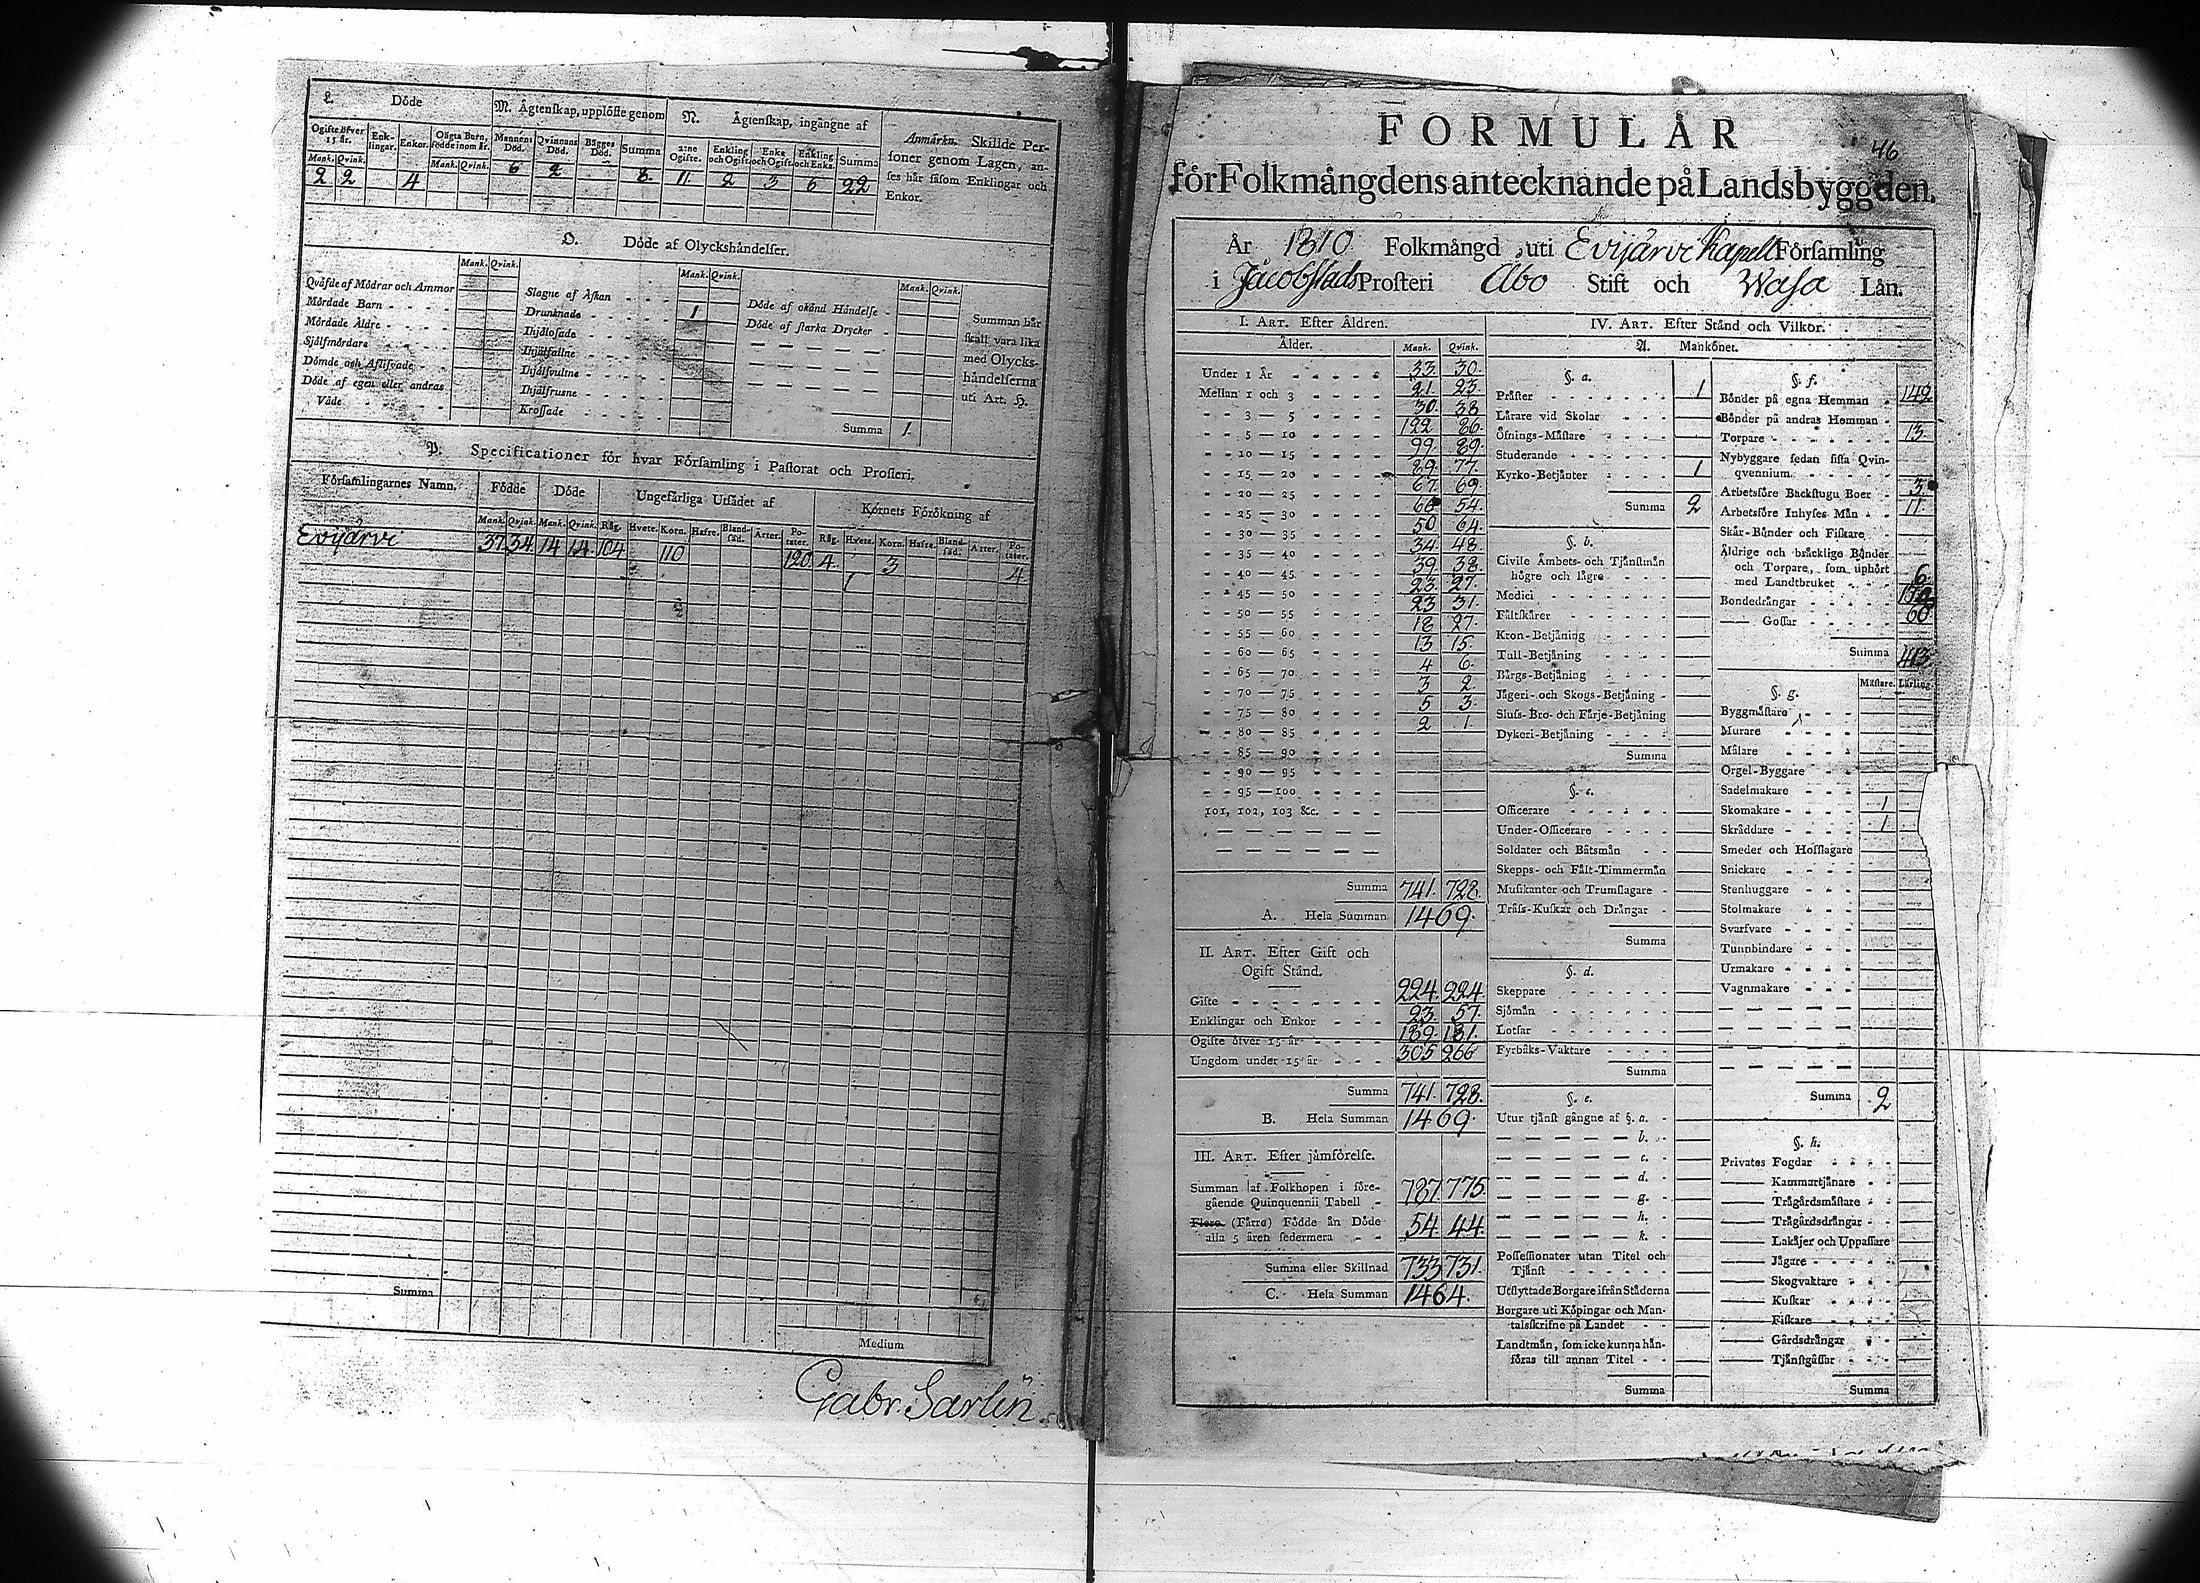 L. Döde
M. Ägtenskap, upplöste genom
N. Ägtenskap, ingångne af
Ogifte öfver 15 år. Enklingar. Enkor. Oägta Barn, födde inom år.
Mannens Död. Qvinnans Död. Bägges Död. Summa
2:ne Ogifte. Enkling och Ogift. Enka och Ogift. Enkling och Enka. Summa
Mank. Qvink. Mank. Qvink.
2 2 4 6 2 8 11. 2 3 6 22
Anmärkn. Skillde Per-
soner genom Lagen, an-
ses här såsom Enklingar och
Enkor.
O. Döde af Olyckshändelser.
Mank. Qvink.
Qväfde af Mödrar och Ammor
Mördade Barn
Mördade Äldre
Sjelfmördare
Dömde och Aflifvade
Döde af egen eller andras
Våde
Mank. Qvink.
Slagne af Åskan
Drunknade 1
Ihjälosade
Ihjälfallne
Ihjälsvultne
Ihjälfrusne
Krossade
Mank. Qvink.
Döde af okänd Händelse
Döde af starka Drycker
Summa 1.
Summan här
skall vara lika
med Olycks-
händelserna
uti Art. H.
P. Specificationer för hvar Församling i Pastorat och Prosteri.
Församlingarnes Namn. Födde Döde Ungefärliga Utsädet af Kornets Förökning af
Mank. Qvink. Mank. Qvink. Råg. Hvete. Korn. Hafre. Bland-säd. Ärter. Po-tater. Råg. Hvete. Korn. Hafre. Bland-säd. Ärter. Po-tater.
Evijärvi 37. 34. 14 14. 104 110 120. 4. 3 4
Summa
Medium
Gabr. Sarlin
FORMULÄR
46
för Folkmängdens antecknande på Landsbyggden.
År 1810 Folkmängd uti Evijärvi Kapell Församling
i Jacobstads Prosteri Åbo Stift och Wasa Län.
I. Art. Efter Åldren.
Ålder. Mank. Qvink.
Under 1 År 33 30
Mellan 1 och 3 21. 23.
3 — 5 30. 38
5 — 10 122 86.
10 — 15 99. 89.
15 — 20 89. 77.
20 — 25 67. 69.
25 — 30 66 54.
30 — 35 50 64.
35 — 40 34. 48.
40 — 45 39. 38.
45 — 50 23. 27.
50 — 55 23 31.
55 — 60 18 27.
60 — 65 13 15.
65 — 70 4 6.
70 — 75 3 2.
75 — 80 5 3.
80 — 85 2 1.
85 — 90
90 — 95
95 — 100
101, 102, 103 &c.
Summa 741. 728.
A. Hela Summan 1469.
II. Art. Efter Gift och
Ogift Stånd.
Gifte 224. 224.
Enklingar och Enkor 23. 57.
Ogifte öfver 15 år 189. 181.
Ungdom under 15 år 305 266
Summa 741. 728.
B. Hela Summan 1469.
III. Art. Efter jämförelse.
Summan af Folkhopen i före-
gående Quinquennii Tabell 787. 775.
Flere. (Färre) Födde än Döde
alla 5 åren sedermera 54. 44.
Summa eller Skillnad 733 731.
C. Hela Summan 1464.
IV. Art. Efter Stånd och Vilkor.
A. Mankönet.
§. a.
Präster 1
Lärare vid Skolar
Öfnings-Mästare
Studerande
Kyrko-Betjänter 1
Summa 2
§. b.
Civile Ämbets- och Tjänstmän
högre och lägre
Medici
Fältskärer
Kron-Betjäning
Tull-Betjäning
Bärgs-Betjäning
Jägeri- och Skogs-Betjäning
Sluss- Bro- och Färje-Betjäning
Dykeri-Betjäning
Summa
§. c.
Officerare
Under-Officerare
Soldater och Båtsmän
Skepps- och Fält-Timmermän
Musikanter och Trumslagare
Träss-Kuskar och Drängar
Summa
§. d.
Skeppare
Sjömän
Lotsar
Fyrbåks-Vaktare
Summa
§. e.
Utur tjänst gångne af §. a.
b.
c.
d.
g.
h.
k.
Possessionater utan Titel och
Tjänst
Utflyttade Borgare ifrån Städerna
Borgare uti Köpingar och Man-
talsskrifne på Landet
Landtmän, som icke kunna hän-
föras till annan Titel
Summa
§. f.
Bönder på egna Hemman 142
Bönder på andras Hemman
Torpare 13.
Nybyggare sedan sista Qvin-
qvennium
Arbetsföre Backstugu Boer 3
Arbetsföre Inhyses Män 11.
Skär-Bönder och Fiskare
Åldrige och bräcklige Bönder
och Torpare, som uphört
med Landtbruket 6.
Bondedrängar
Gossar 60
Summa 413.
Mästare. Lärling.
§. g.
Byggmästare
Murare
Målare
Orgel-Byggare
Sadelmakare
Skomakare 1
Skräddare 1
Smeder och Hofslagare
Snickare
Stenhuggare
Stolmakare
Svarfvare
Tunnbindare
Urmakare
Vagnmakare
Summa 2
§. h.
Privates Fogdar
Kammartjänare
Trägårdsmästare
Trägårdsdrängar
Lakäjer och Uppassare
Jägare
Skogvaktare
Kuskar
Fiskare
Gårdsdrängar
Tjänstgåssar
Summa